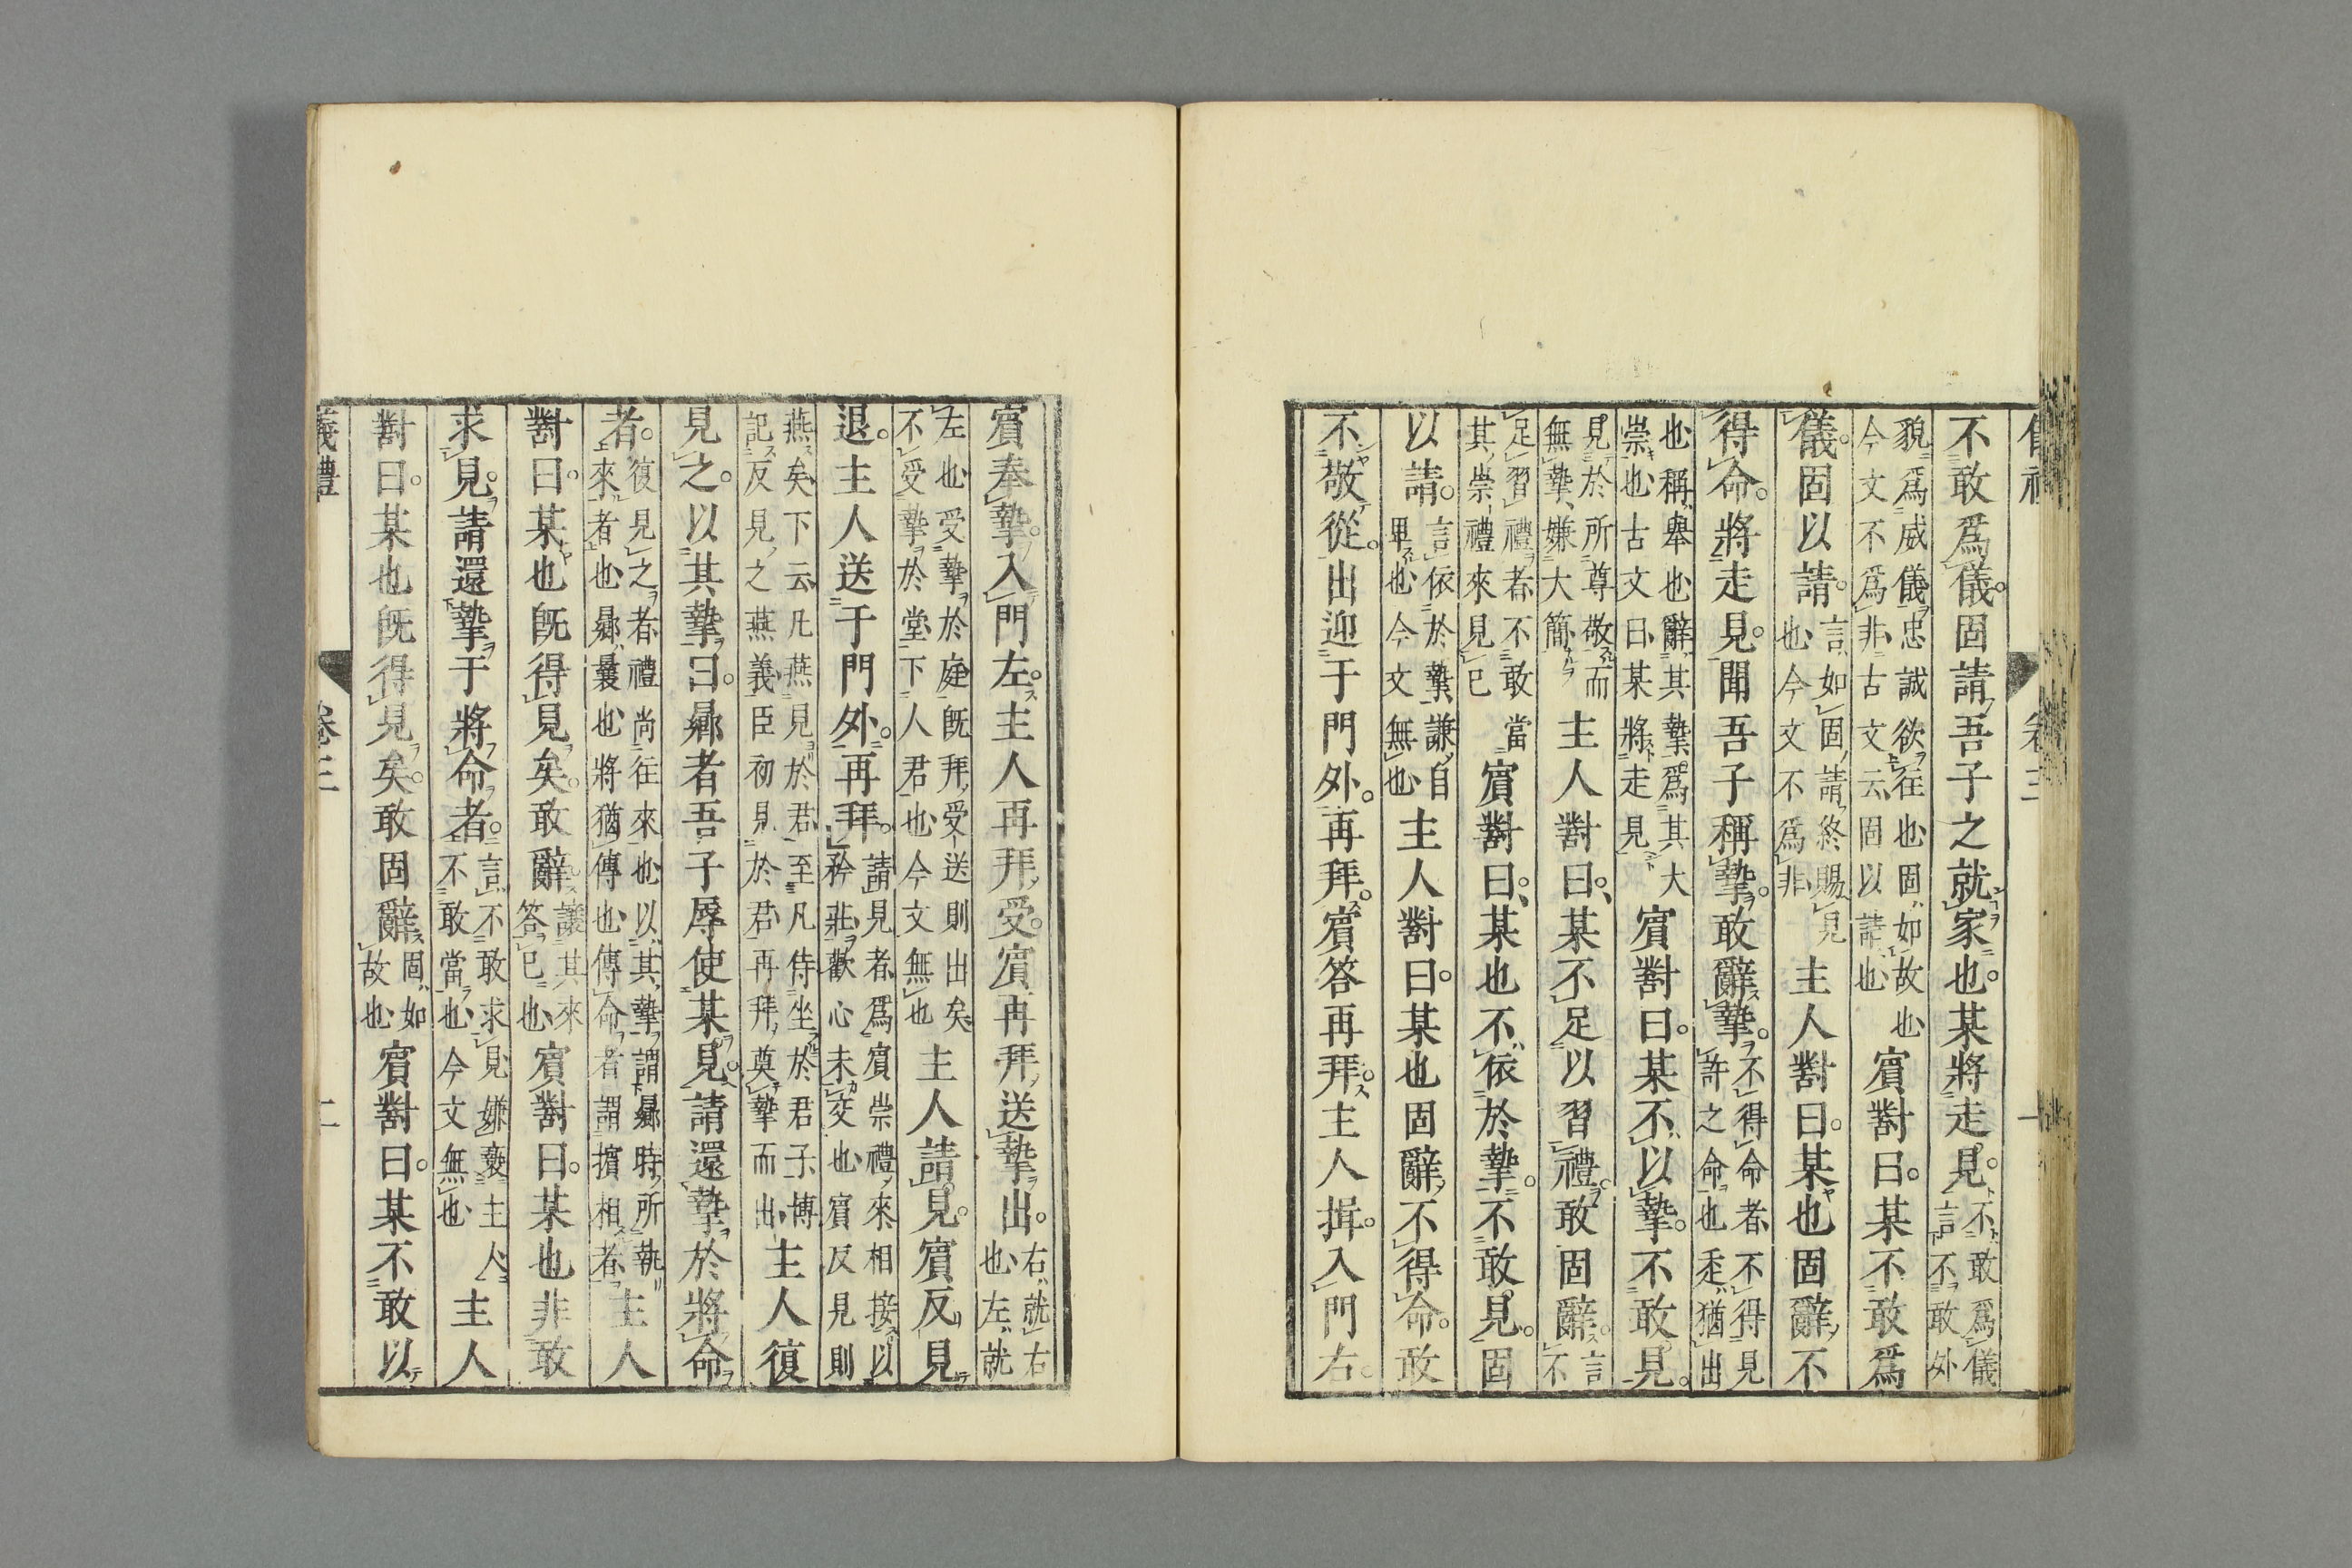 儀禮 卷三 一
不敢爲儀固請吾子之就家也某將走見不敢爲儀言不敢外
貌爲威儀忠誠欲往也固如故也今文不爲非古文云固以請也賓對曰某不敢爲
儀固以請言如固請終賜見也今文不爲非主人對曰某也固辭不
得命將走見聞吾子稱摯敢辭摯不得命者不得見許之命也走猶出
也稱舉也辭其摯爲其大崇也古文曰某將走見賓對曰某不以摯不敢見
見於所尊敬而無摯嫌大簡主人對曰某不足以習禮敢固辭言不
足習禮者不敢當其崇禮來見已賓對曰某也不依於摯不敢見固
以請言依於摯謙自卑也今文無也主人對曰某也固辭不得命敢
不敬從出迎于門外再拜賓答再拜主人揖入門右
賓奉摯入門左主人再拜受賓再拜送摯出右就右也左就
左也受摯於庭旣拜受送則出矣不受摯於堂下人君也今文無也主人請見賓反見
退主人送于門外再拜請見者爲賓崇禮來相接以矜莊歡心未交也賓反見則
燕矣下云凡燕見於君至凡侍坐於君子博記反見之燕義臣初見於君再拜奠摯而出主人復
見之以其摯曰曏者吾子辱使某見請還摯於將命
者復見之者禮尚往來也以其摯謂曏時所執來者也曏曩也將猶傳也傳命者謂擯相者主人
對曰某也旣得見矣敢辭讓其來答已也賓對曰某也非敢
求見請還摯于將命者言不敢求見嫌褻主人不敢當也今文無也主人
對曰某也旣得見矣敢固辭固如故也賓對曰某不敢以
義禮 卷三 二